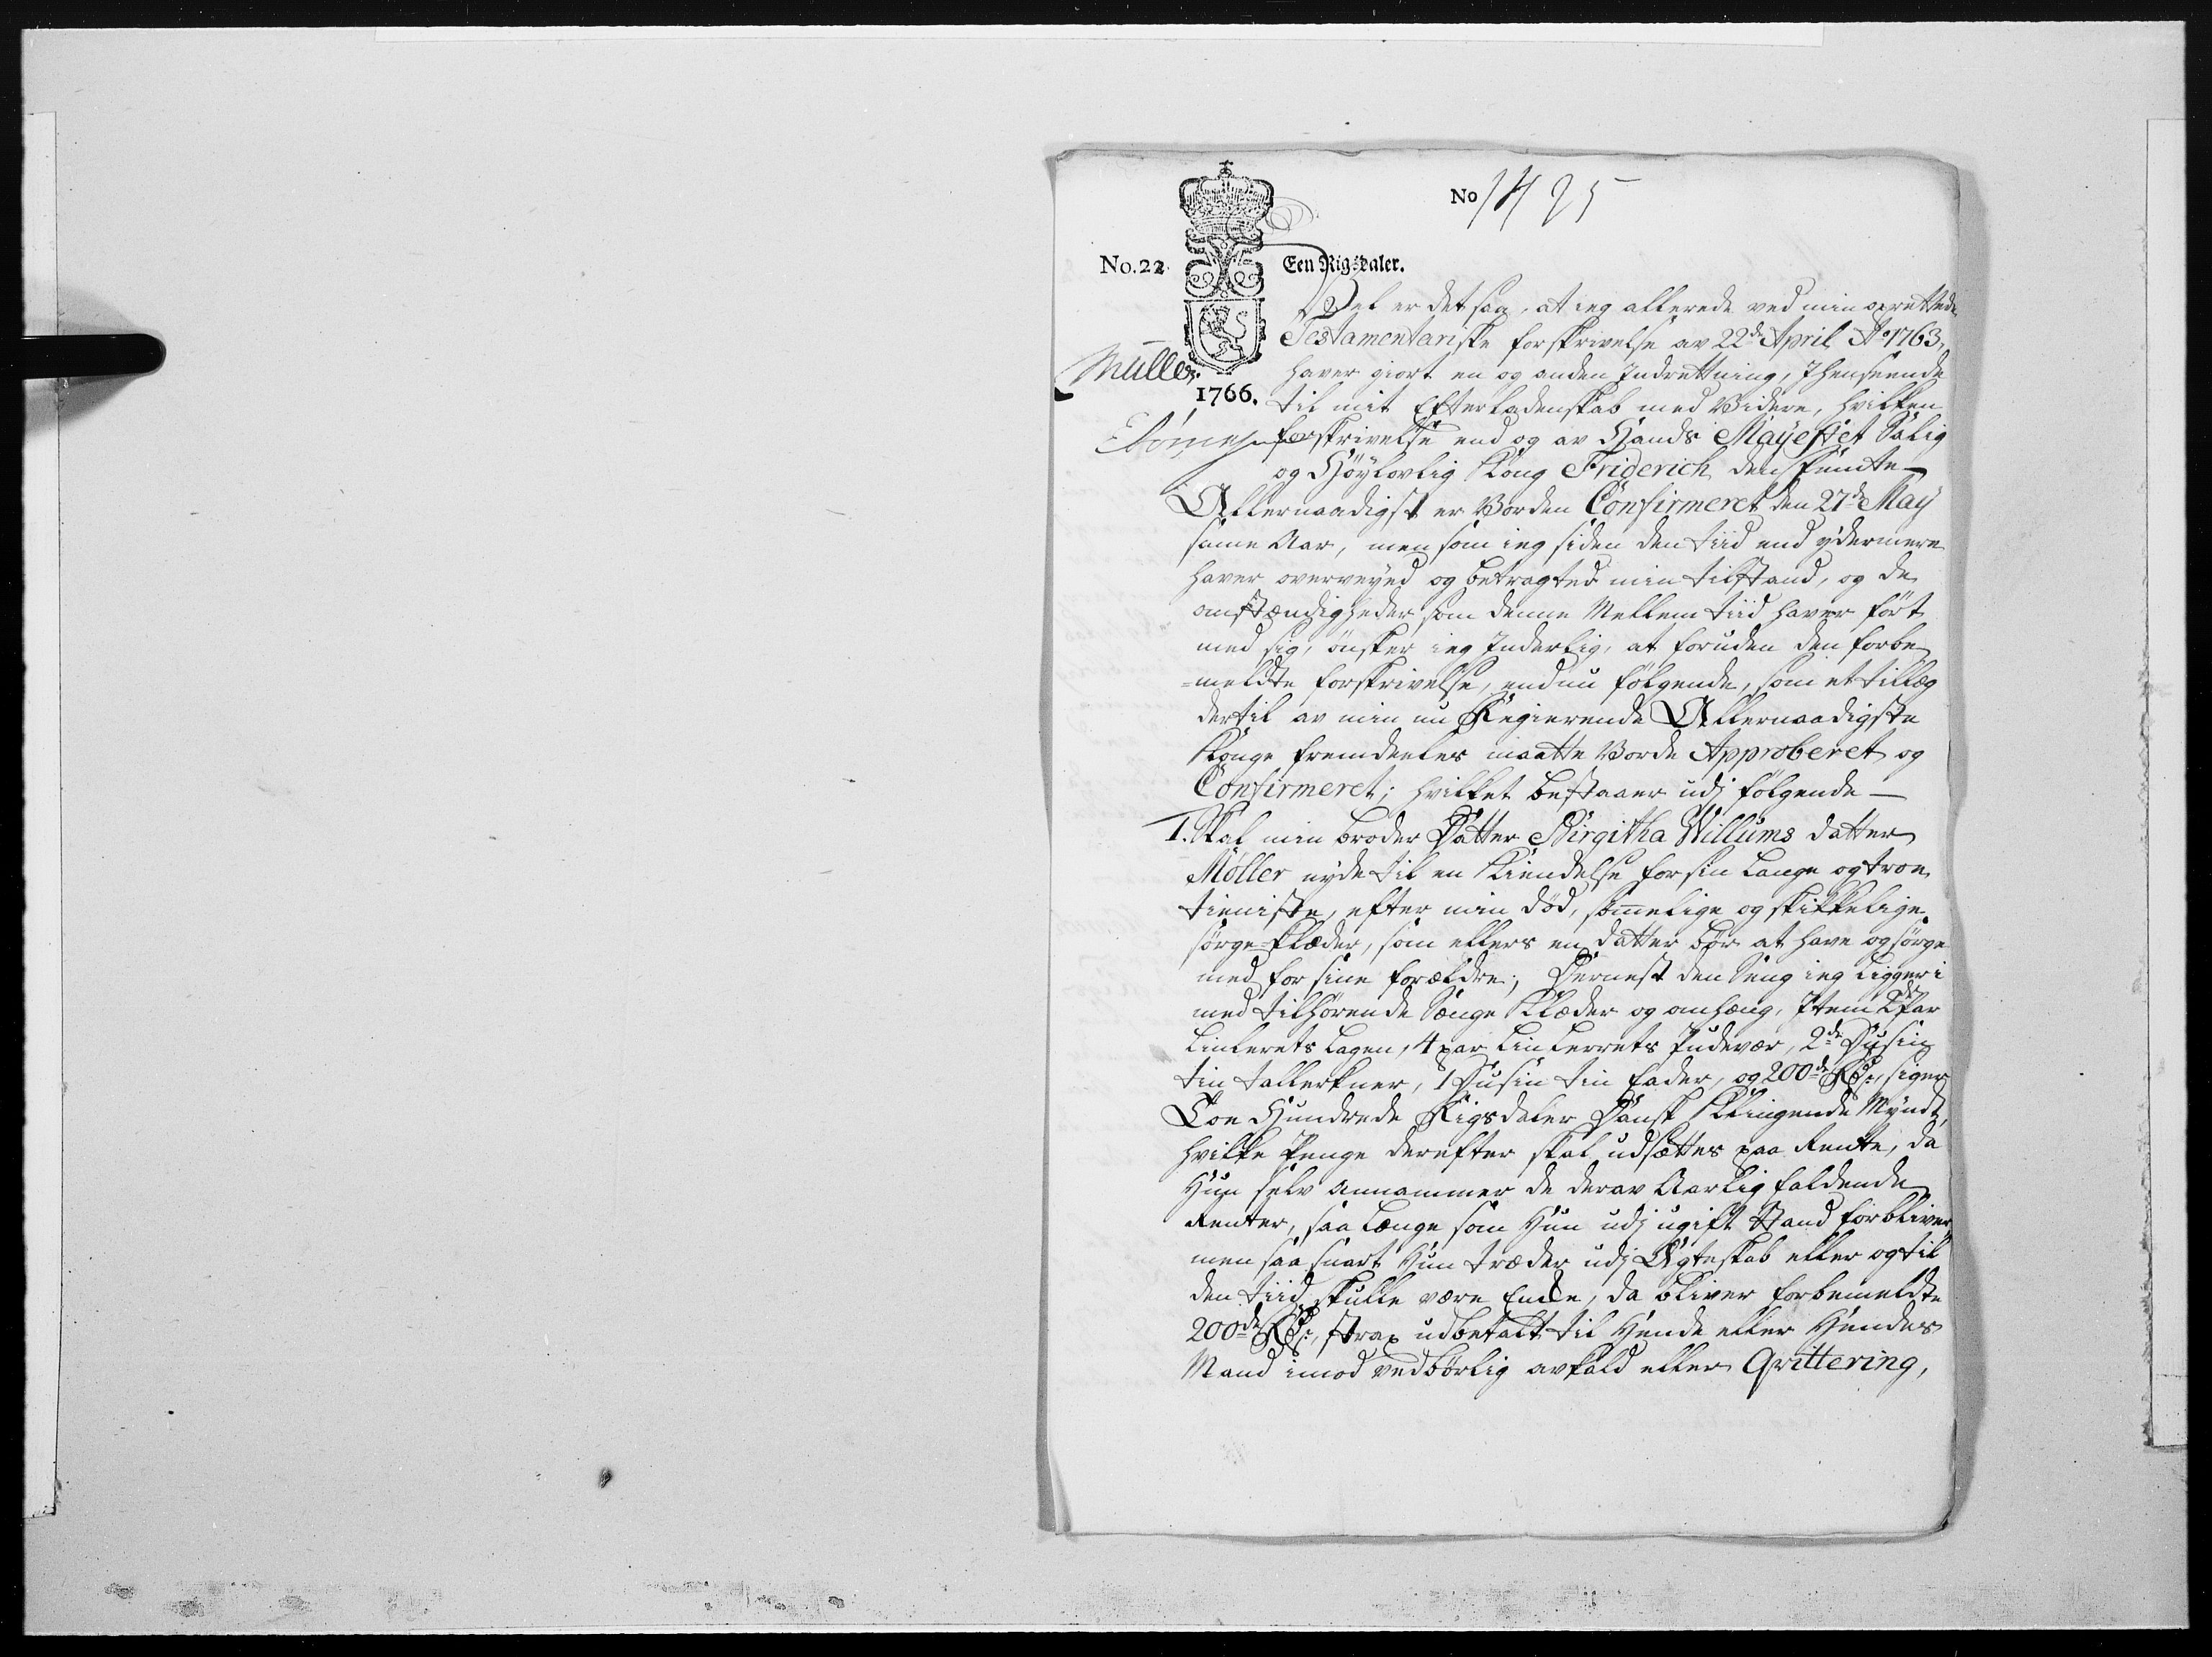 No 1425
No. 22. Een Rigsdaler.
Vel er det saa, at ieg allerede ved min oprettede
Testamentariske forskrivelse av 22de April Ao 1763,
Müller.
haver giort en og anden Indrettning, I henseende
1766.
til mit Efterladenskab med Videre, hvilken
forskrivelse end og av Hands Mayestet Salig
og Høylovlig Kong Friderich den femte
Allernaadigst er Vorden Confirmeret den 27de May
samme Aar, men som ieg siden den tiid end ydermere
haver overveyed og betragted min tilstand, og de
omstændigheder som denne Mellem tiid haver ført
med sig, ønsker ieg Inderlig, at foruden den forbe
=meldte forskrivelse, endnu følgende, som et tillæg
dertil av min nu Regierende Allernaadigste
Konge fremdeeles maatte Vorde Approberet og
Confirmeret; hvilket bestaaer udj følgende
1. Skal min broder Datter Birgitha Willums datter
Møller nyde til en Kiendelse for sin lange og troe
tieniste, efter min død, sømmelige og skikkelige
sørge-klæder, som ellers en datter bør at have og sørge
med for sine forældre; Dernest den Seng ieg ligger i
med tilhørende Senge Klæder og omhæng, Item 2de Par
Linlerets Lagen, 4 par Linlerrets Pudevær, 2de Dusin
tin tallerkner, 1 Dusin tin fader, og 200de Rdr., siger
Toe Hundrede Rigsdaler Dansk Klingende Myndt,
hvilke Penge derefter skal udsættes paa Rente, da
Hun selv annammer de derav Aarlig faldende
Renter, saa længe som Hun udj ugift Stand forbliver,
men saa snart Hun træder udj Ægteskab eller og til
den tiid skulle være Encke, da bliver forbemeldte
200de Rdr., strax udbetalt til Hende eller Hendes
Mand imod vedbørlig avkald eller Qvittering,